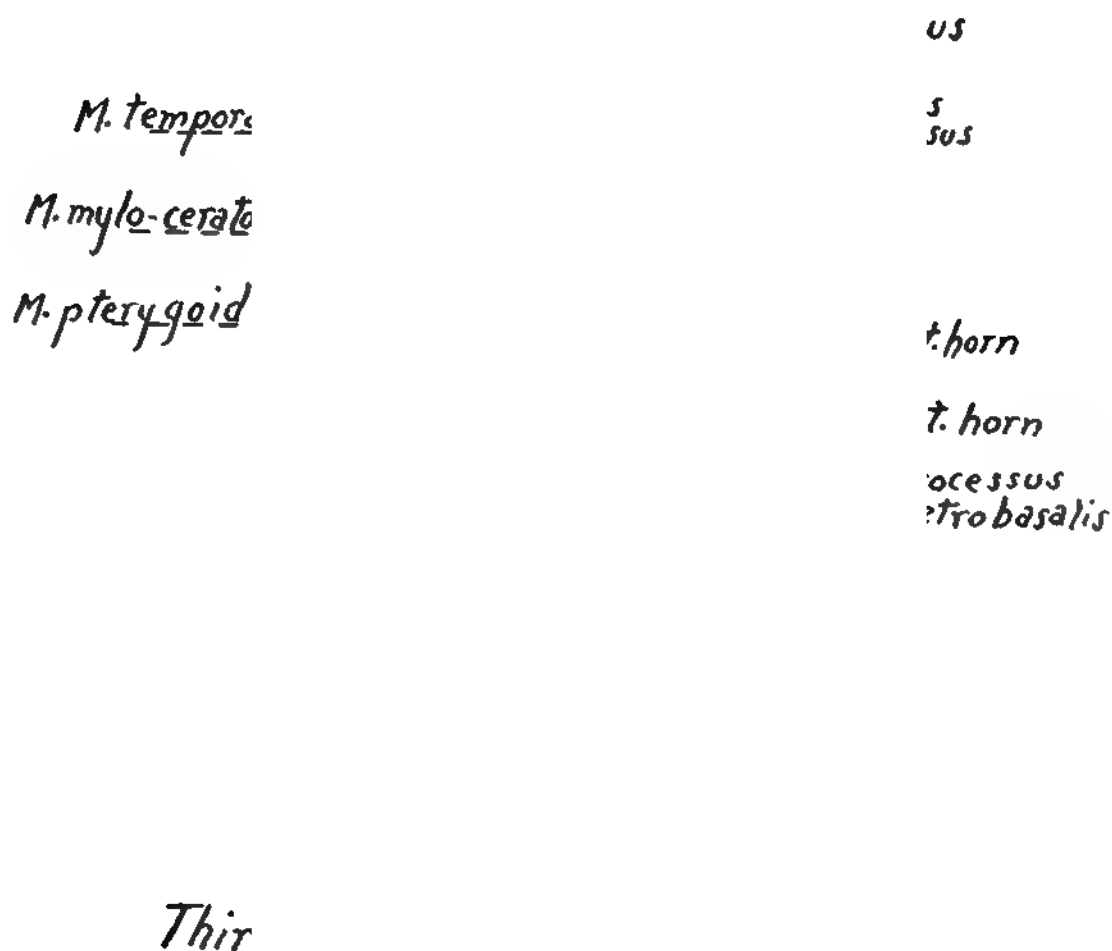 us
M. tempora
s
sus
M. mylo-cerato
M. pterygoid
t. horn
t. horn
ocessus
etrobasalis
Thir